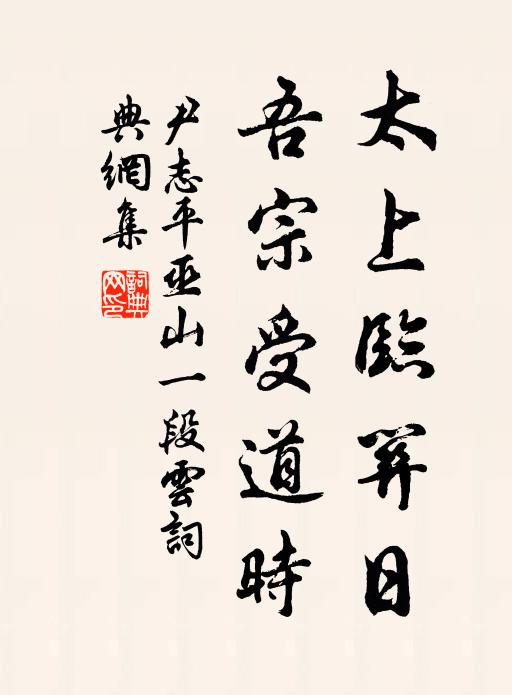 太上臨關日
吾宗受道時
尹志平巫山一段雲詞
典網集
詞典
网印